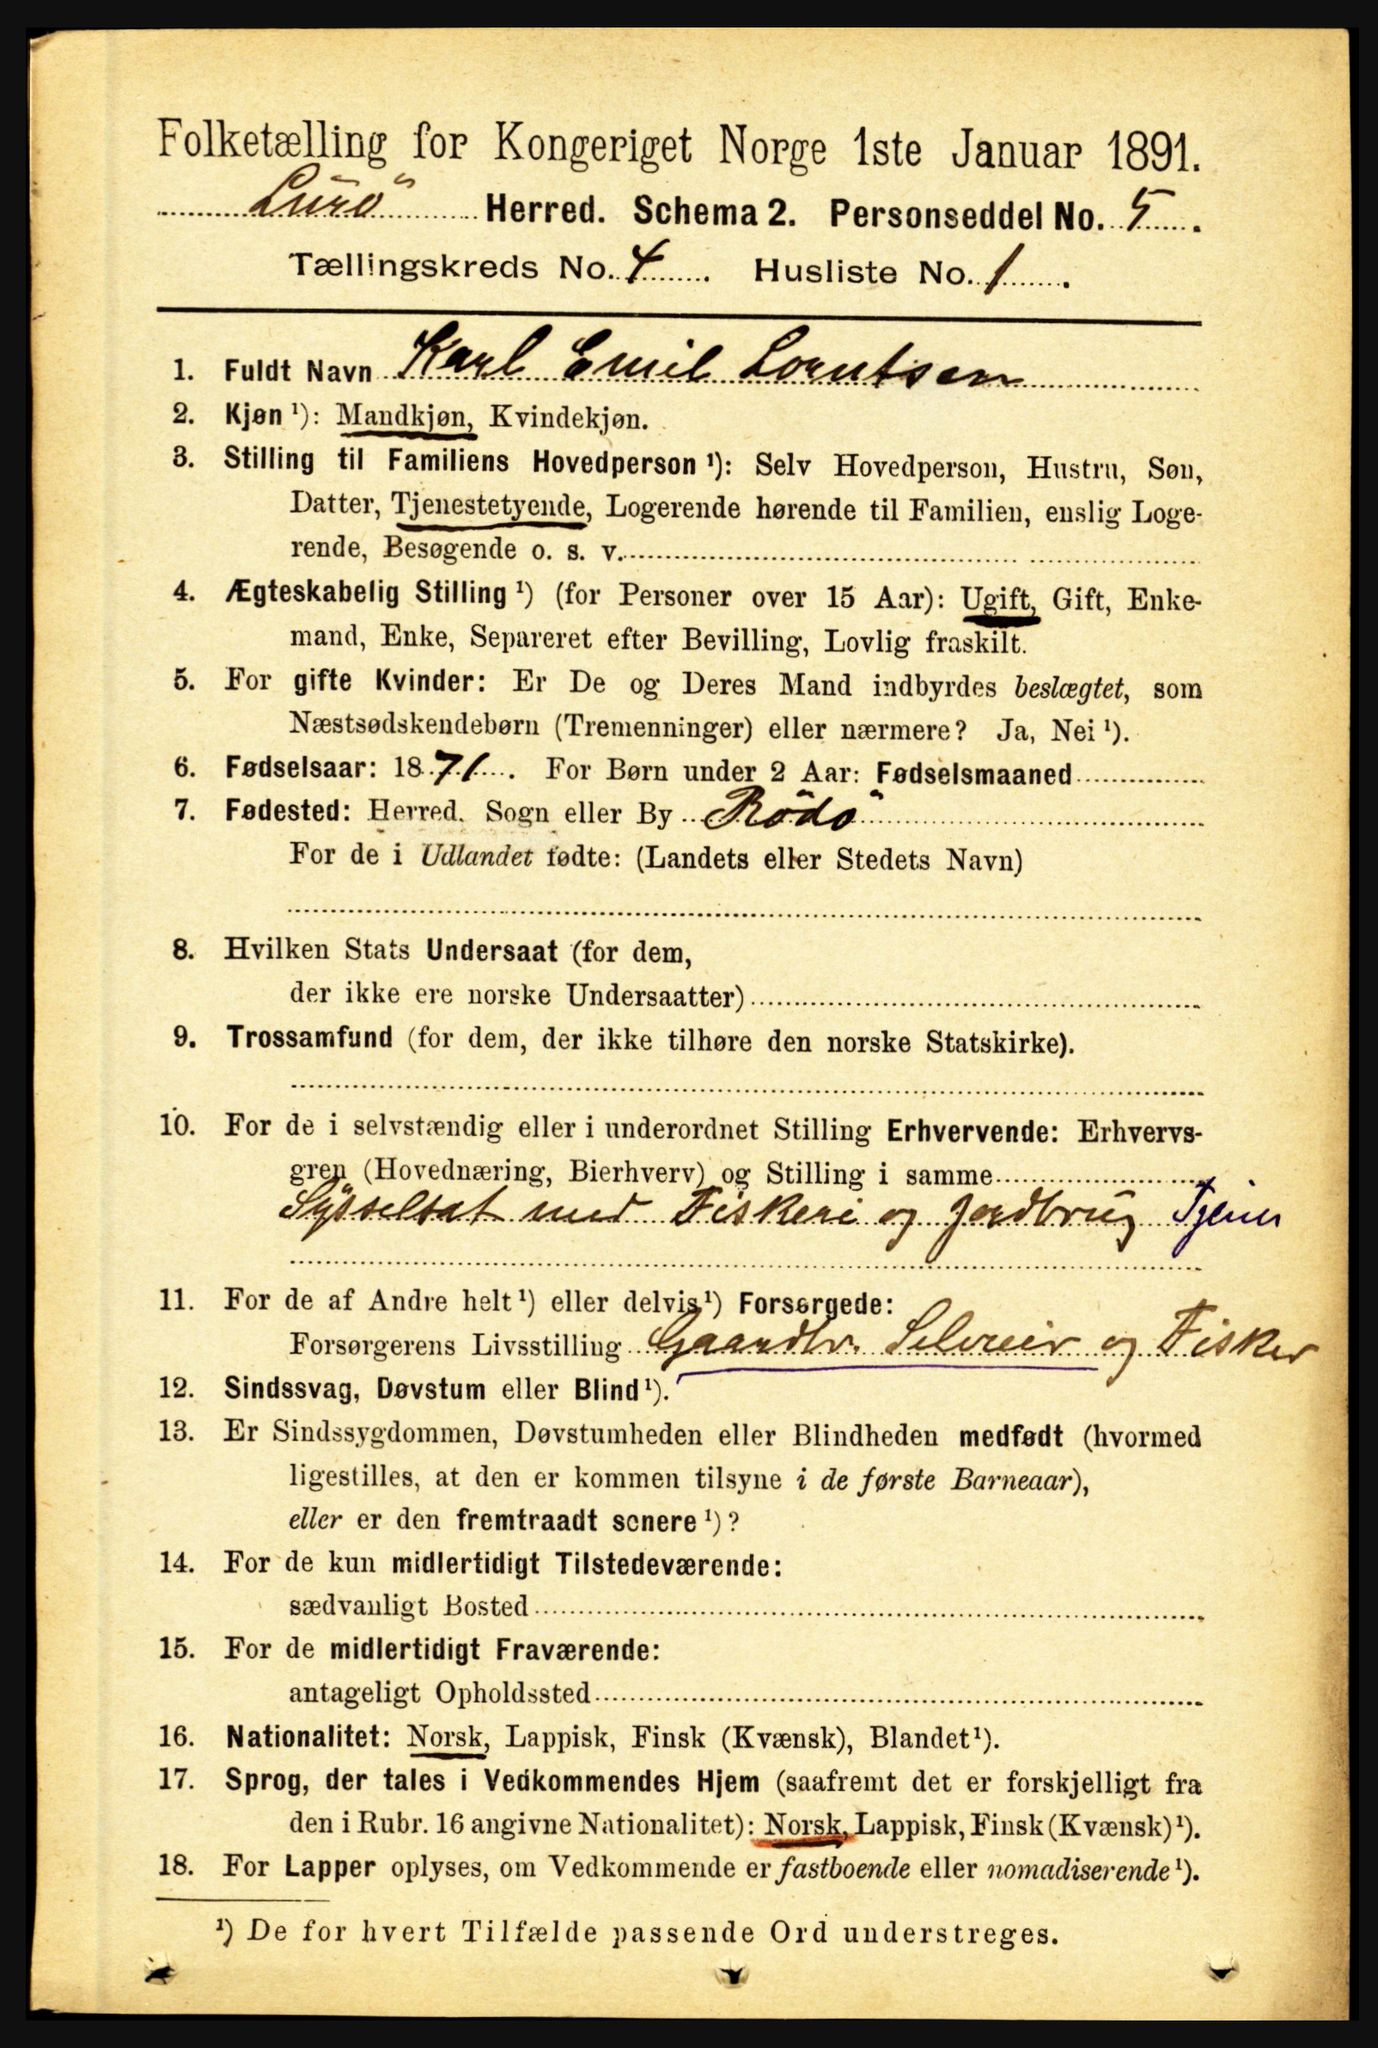 Folketælling for Kongeriget Norge 1ste Januar 1891.
Lurö Herred. Schema 2. Personseddel No. 5.
Tællingskreds No. 4. Husliste No. 1.
1. Fuldt Navn Karl Emil Lorntsen
2. Kjøn ¹): Mandkjøn, Kvindekjøn.
3. Stilling til Familiens Hovedperson ¹): Selv Hovedperson, Hustru, Søn,
Datter, Tjenestetyende, Logerende hørende til Familien, enslig Loge-
rende, Besøgende o. s. v.
4. Ægteskabelig Stilling ¹) (for Personer over 15 Aar): Ugift, Gift, Enke-
mand, Enke, Separeret efter Bevilling, Lovlig fraskilt.
5. For gifte Kvinder: Er De og Deres Mand indbyrdes beslægtet, som
Næstsødskendebørn (Tremenninger) eller nærmere? Ja, Nei ¹).
6. Fødselsaar: 1871. For Børn under 2 Aar: Fødselsmaaned
7. Fødested: Herred, Sogn eller By Rödö
For de i Udlandet fødte: (Landets eller Stedets Navn)
8. Hvilken Stats Undersaat (for dem,
der ikke ere norske Undersaatter)
9. Trossamfund (for dem, der ikke tilhøre den norske Statskirke).
10. For de i selvstændig eller i underordnet Stilling Erhvervende: Erhvervs-
gren (Hovednæring, Bierhverv) og Stilling i samme
Sysselsat med Fiskeri og Jordbrug Tjener
11. For de af Andre helt ¹) eller delvis ¹) Forsørgede:
Forsørgerens Livsstilling Gaardbr. Selveier og Fisker
12. Sindssvag, Døvstum eller Blind ¹).
13. Er Sindssygdommen, Døvstumheden eller Blindheden medfødt (hvormed
ligestilles, at den er kommen tilsyne i de første Barneaar),
eller er den fremtraadt senere ¹)?
14. For de kun midlertidigt Tilstedeværende:
sædvanligt Bosted
15. For de midlertidigt Fraværende:
antageligt Opholdssted
16. Nationalitet: Norsk, Lappisk, Finsk (Kvænsk), Blandet ¹).
17. Sprog, der tales i Vedkommendes Hjem (saafremt det er forskjelligt fra
den i Rubr. 16 angivne Nationalitet): Norsk, Lappisk, Finsk (Kvænsk) ¹).
18. For Lapper oplyses, om Vedkommende er fastboende eller nomadiserende ¹).
¹) De for hvert Tilfælde passende Ord understreges.